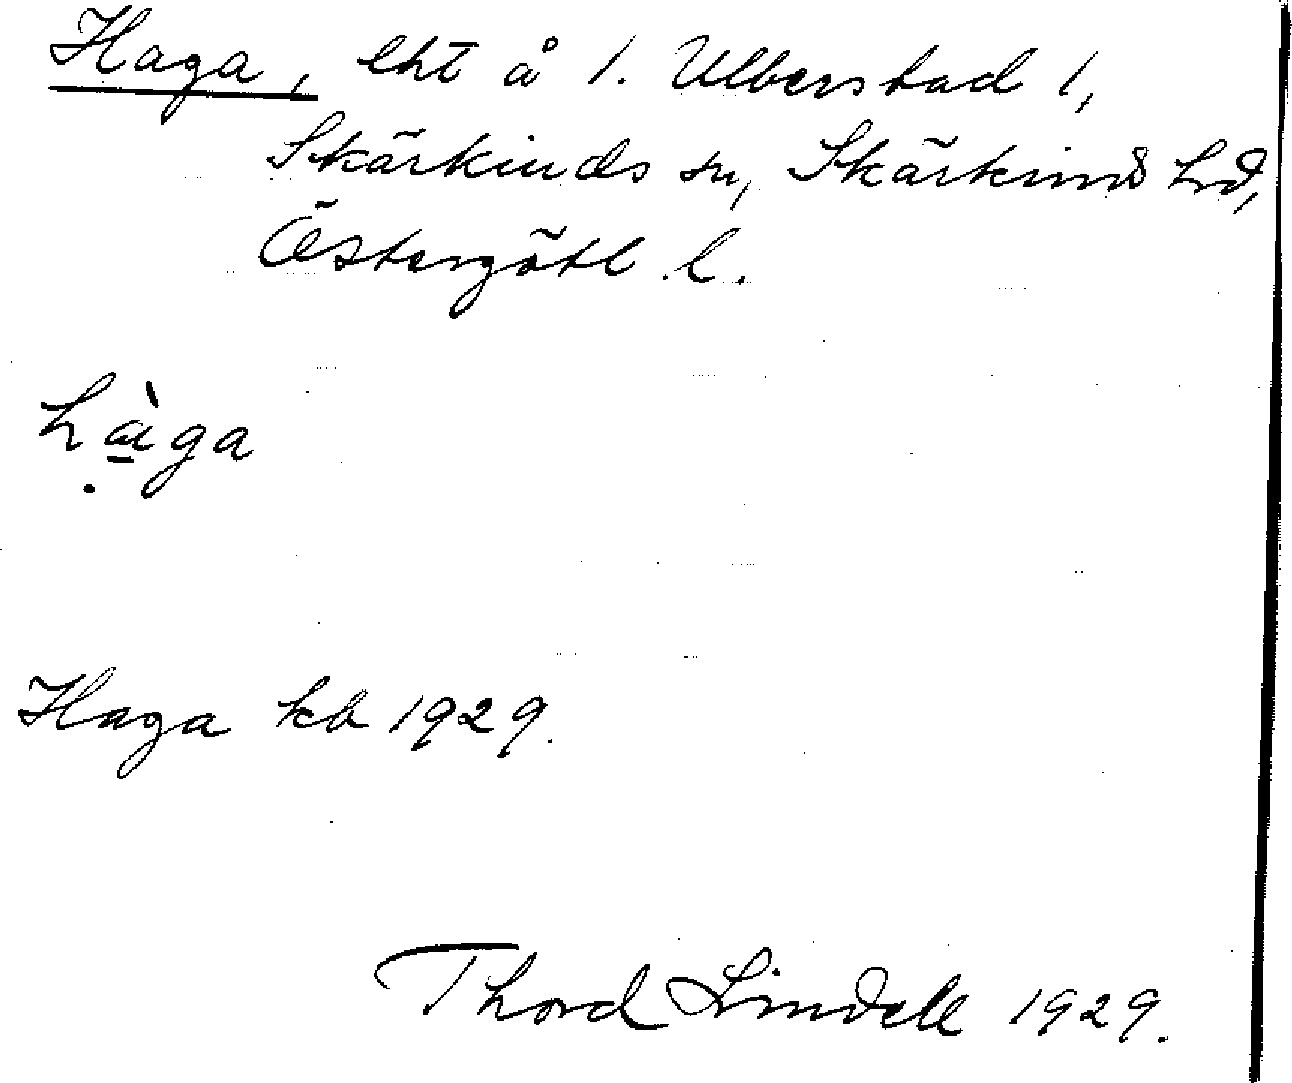 Haga, lht å 1. Ulberstad 1,
Skärkinds sn, Skärkinds hd,
Östergötl. l.
hàga
Haga kb 1929.
Thord Lindell 1929.